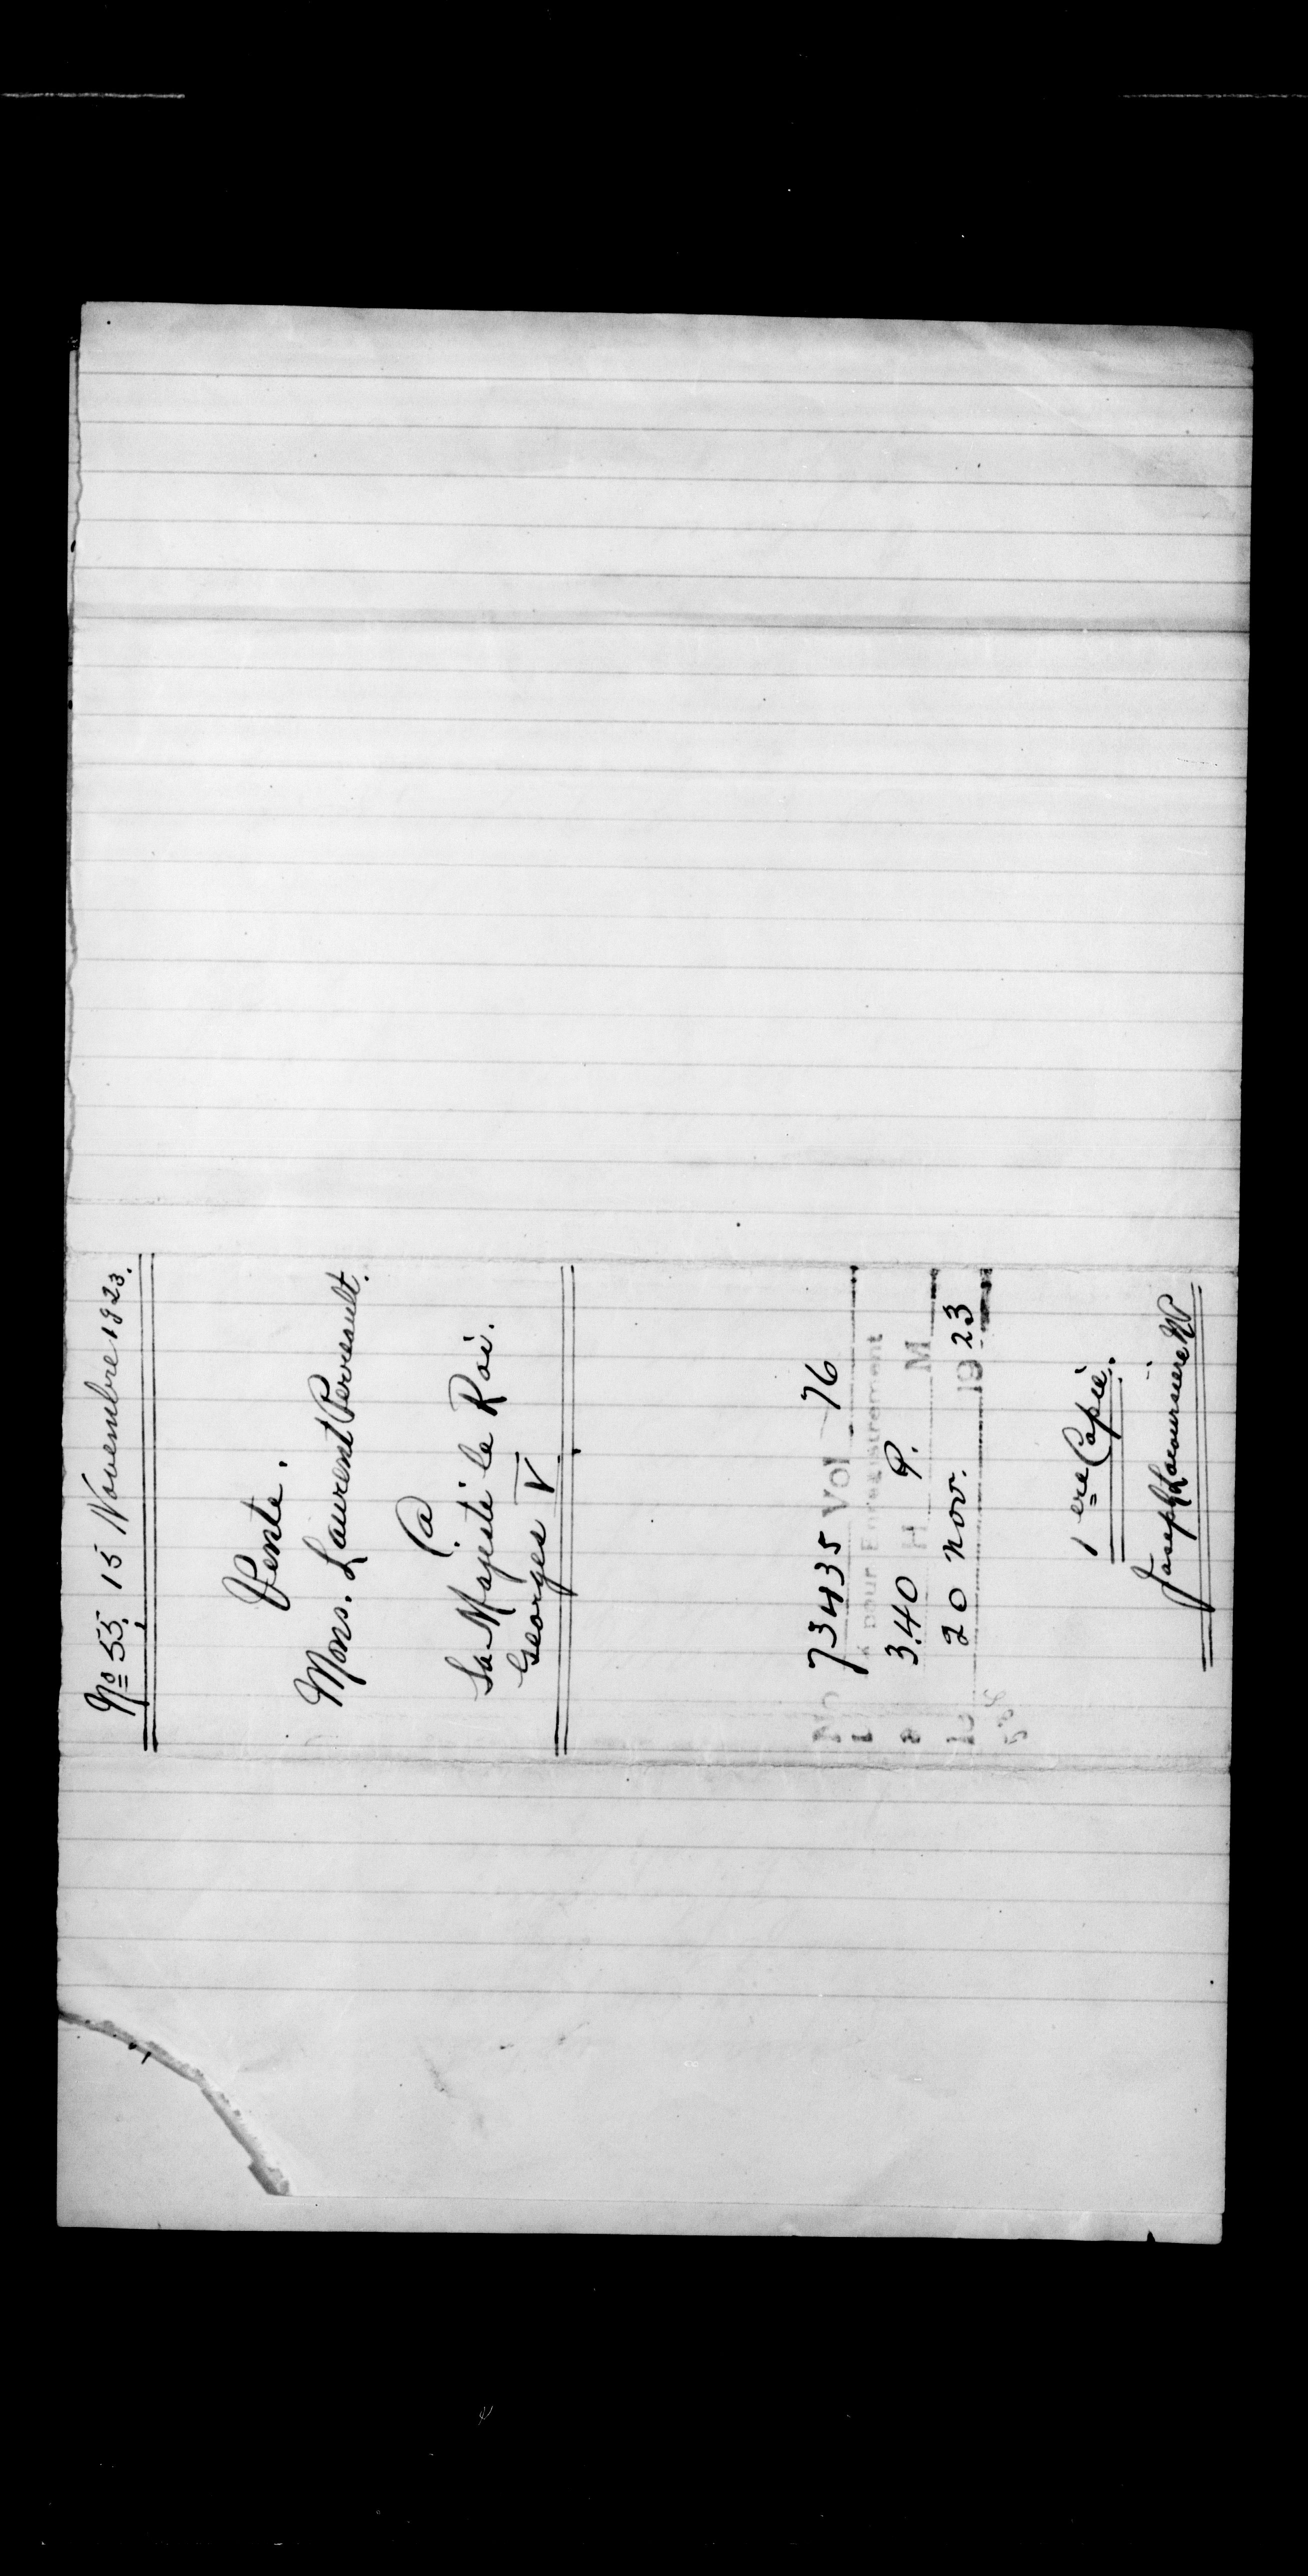 No 53, 15 Novembre 1923.
Vente.
Mons. Laurent Perreault.
à
Sa Majesté le Roi.
Georges V
No 73435 Vol 76
pour Enregistrement
3.40 H P. M
20 Nov. 1923
1ere Copie.
Joseph Lacoursière NP